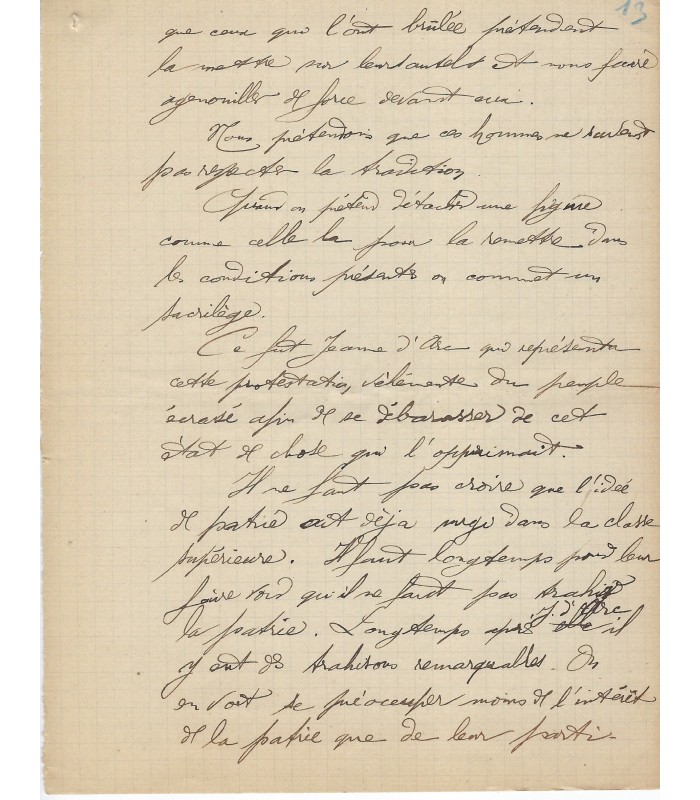 13
que ceux qui l'ont brûlée prétendent
la mettre sur leurs autels et nous faire
agenouiller de force devant eux.
Nous prétendons que ces hommes ne savent
pas respecter la tradition.
Quand on prétend détacher une figure
comme celle la pour la remettre dans
les conditions présentes on commet un
sacrilège.
Ce fut Jeanne d'Arc qui représenta
cette protestation véhémente du peuple
écrasé afin de se débarasser de cet
état de chose qui l'opprimait.
Il ne faut pas croire que l'idée
de patrie ait déjà surgi dans la classe
supérieure. Il faut longtemps pour leur
faire voir qu'il ne faut pas trahir
la patrie. Longtemps après elle J. d'Arc il
y eut des trahisons remarquables. On
en voit se préoccuper moins de l'intérêt
de la patrie que de leur parti-